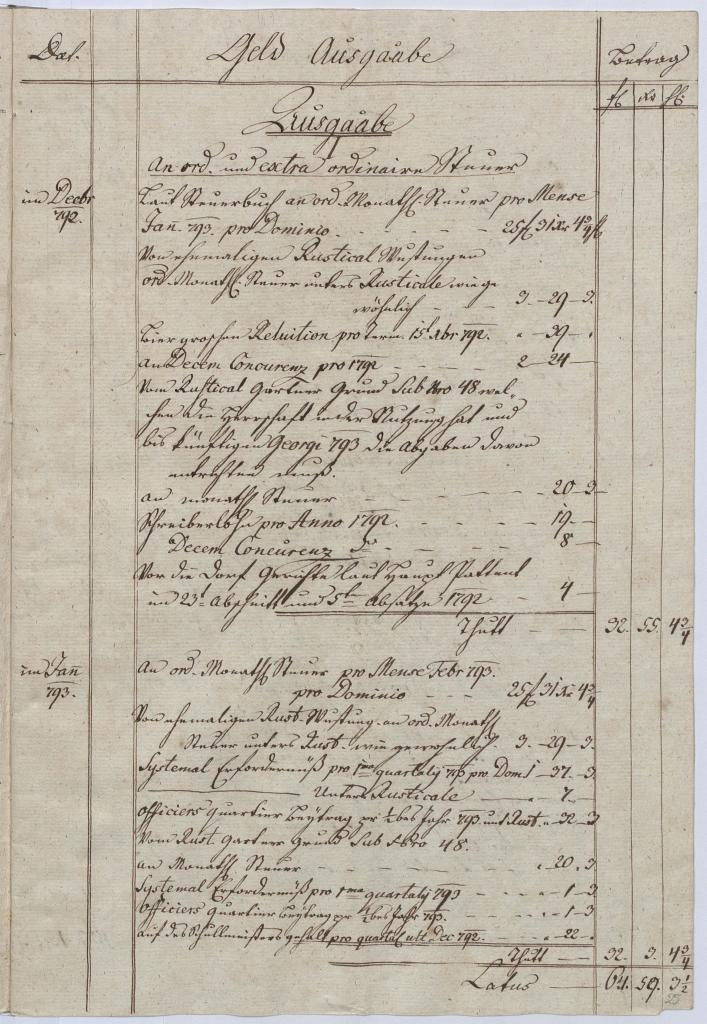 Dat. Geld Ausgaabe Betrag
fl xr hl:
Ausgaabe
An ord. und extra ordinaire Steuer
im Decbr 792. Laut Steuerbuch an ord. Monathl. Steuer pro Mense
Jan. 793. pro Dominio 25 fl 31 xr 4 3/4 hl
Von ehemaligen Rustical Wustungen
ord. Monathl. Steuer unters Rusticale wie ge
wöhnlich 3. - 29 - 3.
Biergroschen Reluition pro term. 15t Xbr 792. " - 39 - "
An Decem Concurenz pro 1792 2 24 -
Vom Rustical Gartner Grund Sub Nro 48 wel-
chen die Herrschaft in der Nutzung hat und
bis künftigen Georgi 793 die Abgaben davon
entrichten muß.
an monathl. Steuer - 20 - 3
Schreiberlohn pro Anno 1792. - 19 -
Decem Concurenz do 8 -
Vor die Dorf Gerichte laut Haupt Pattent
im 23t Abschnitt und 5ten Absatze 1792 - 4 -
Thutt 32. 55. 4 3/4
im Jann 793. An ord. Monathl. Steuer pro Mense Febr 793.
pro Dominio 25 fl 31 xr 4 3/4
Von ehemaligen Rust. Wustung. an ord. Monathl.
Steuer unters Rust. wie gewohnlich. 3. - 29 - 3.
Systemal Erfordernuß pro 1ma quartaly 793 pro Dom 1 - 37. - 3.
Unters Rusticale 7. -
Officiers quartier Beytrag pr 1/2bes Jahr 793 unt. Rust. " 32 - 3
Vom Rust. Gartner Grund Sub Nro 48.
an Monathl. Steuer " 20. 3
Systemal Erfordernuß pro 1ma quartaly 793 - 1 - 3
Officiers quartier Beytrag pr 1/2bes Jahr 793. - 1 - 3
Auf des Schullmeisters gehalt pro quartal ult. Dec 792. " 22 - "
Thutt 32. 3. 4 3/4
Latus 64. 59. 3 1/2
25